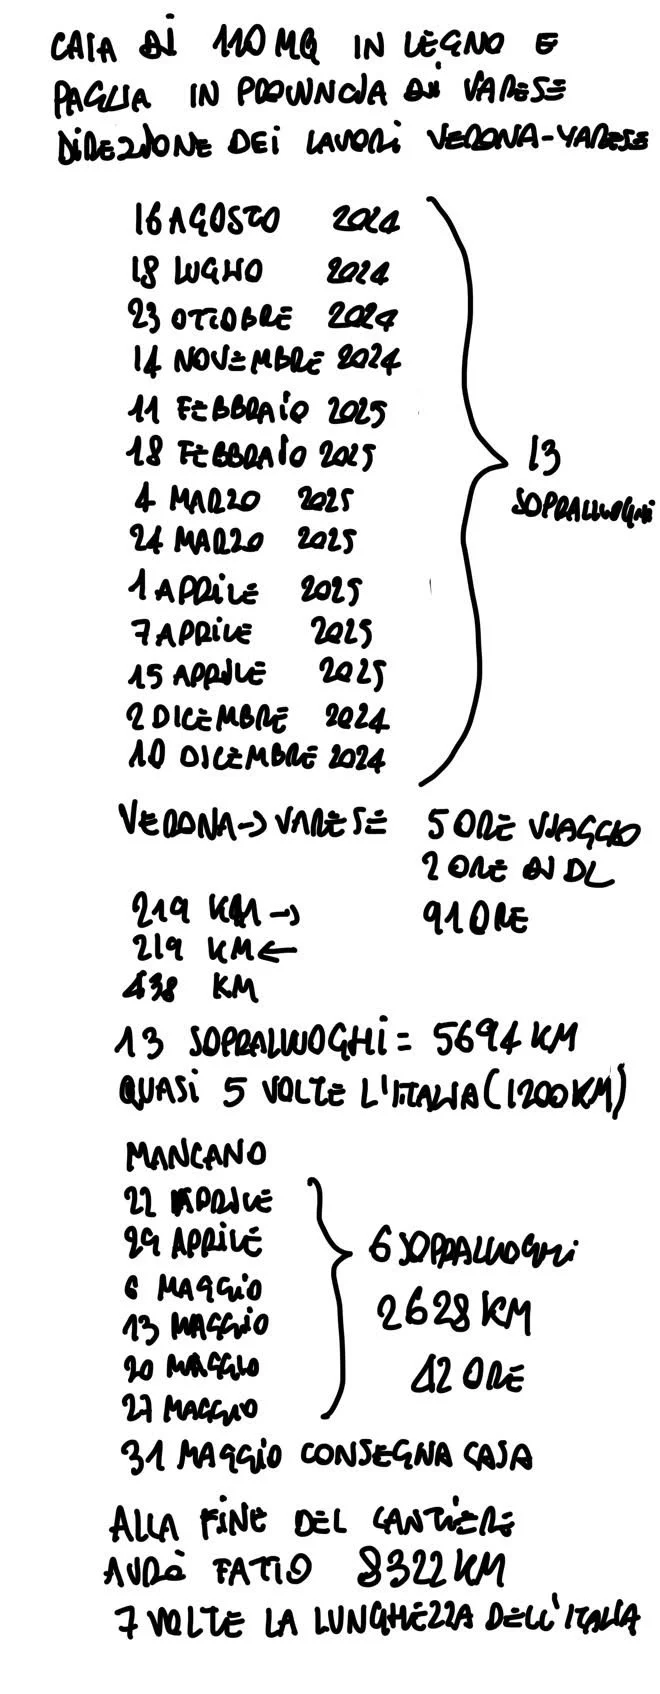 CASA DI 110 MQ IN LEGNO E
PAGLIA IN PROVINCIA DI VARESE
DIREZIONE DEI LAVORI VERONA-VARESE
16 AGOSTO 2024
18 LUGLIO 2024
23 OTTOBRE 2024
14 NOVEMBRE 2024
11 FEBBRAIO 2025
18 FEBBRAIO 2025
4 MARZO 2025
24 MARZO 2025
1 APRILE 2025
7 APRILE 2025
15 APRILE 2025
2 DICEMBRE 2024
10 DICEMBRE 2024
13
SOPRALLUOGHI
VERONA -> VARESE 5 ORE VIAGGIO
2 ORE DI DL
219 KM -> 91 ORE
219 KM <-
438 KM
13 SOPRALLUOGHI = 5694 KM
QUASI 5 VOLTE L'ITALIA (1200 KM)
MANCANO
22 APRILE
29 APRILE
6 MAGGIO
13 MAGGIO
20 MAGGIO
27 MAGGIO
6 SOPRALLUOGHI
2628 KM
42 ORE
31 MAGGIO CONSEGNA CASA
ALLA FINE DEL CANTIERE
AVRÒ FATTO 8322 KM
7 VOLTE LA LUNGHEZZA DELL'ITALIA